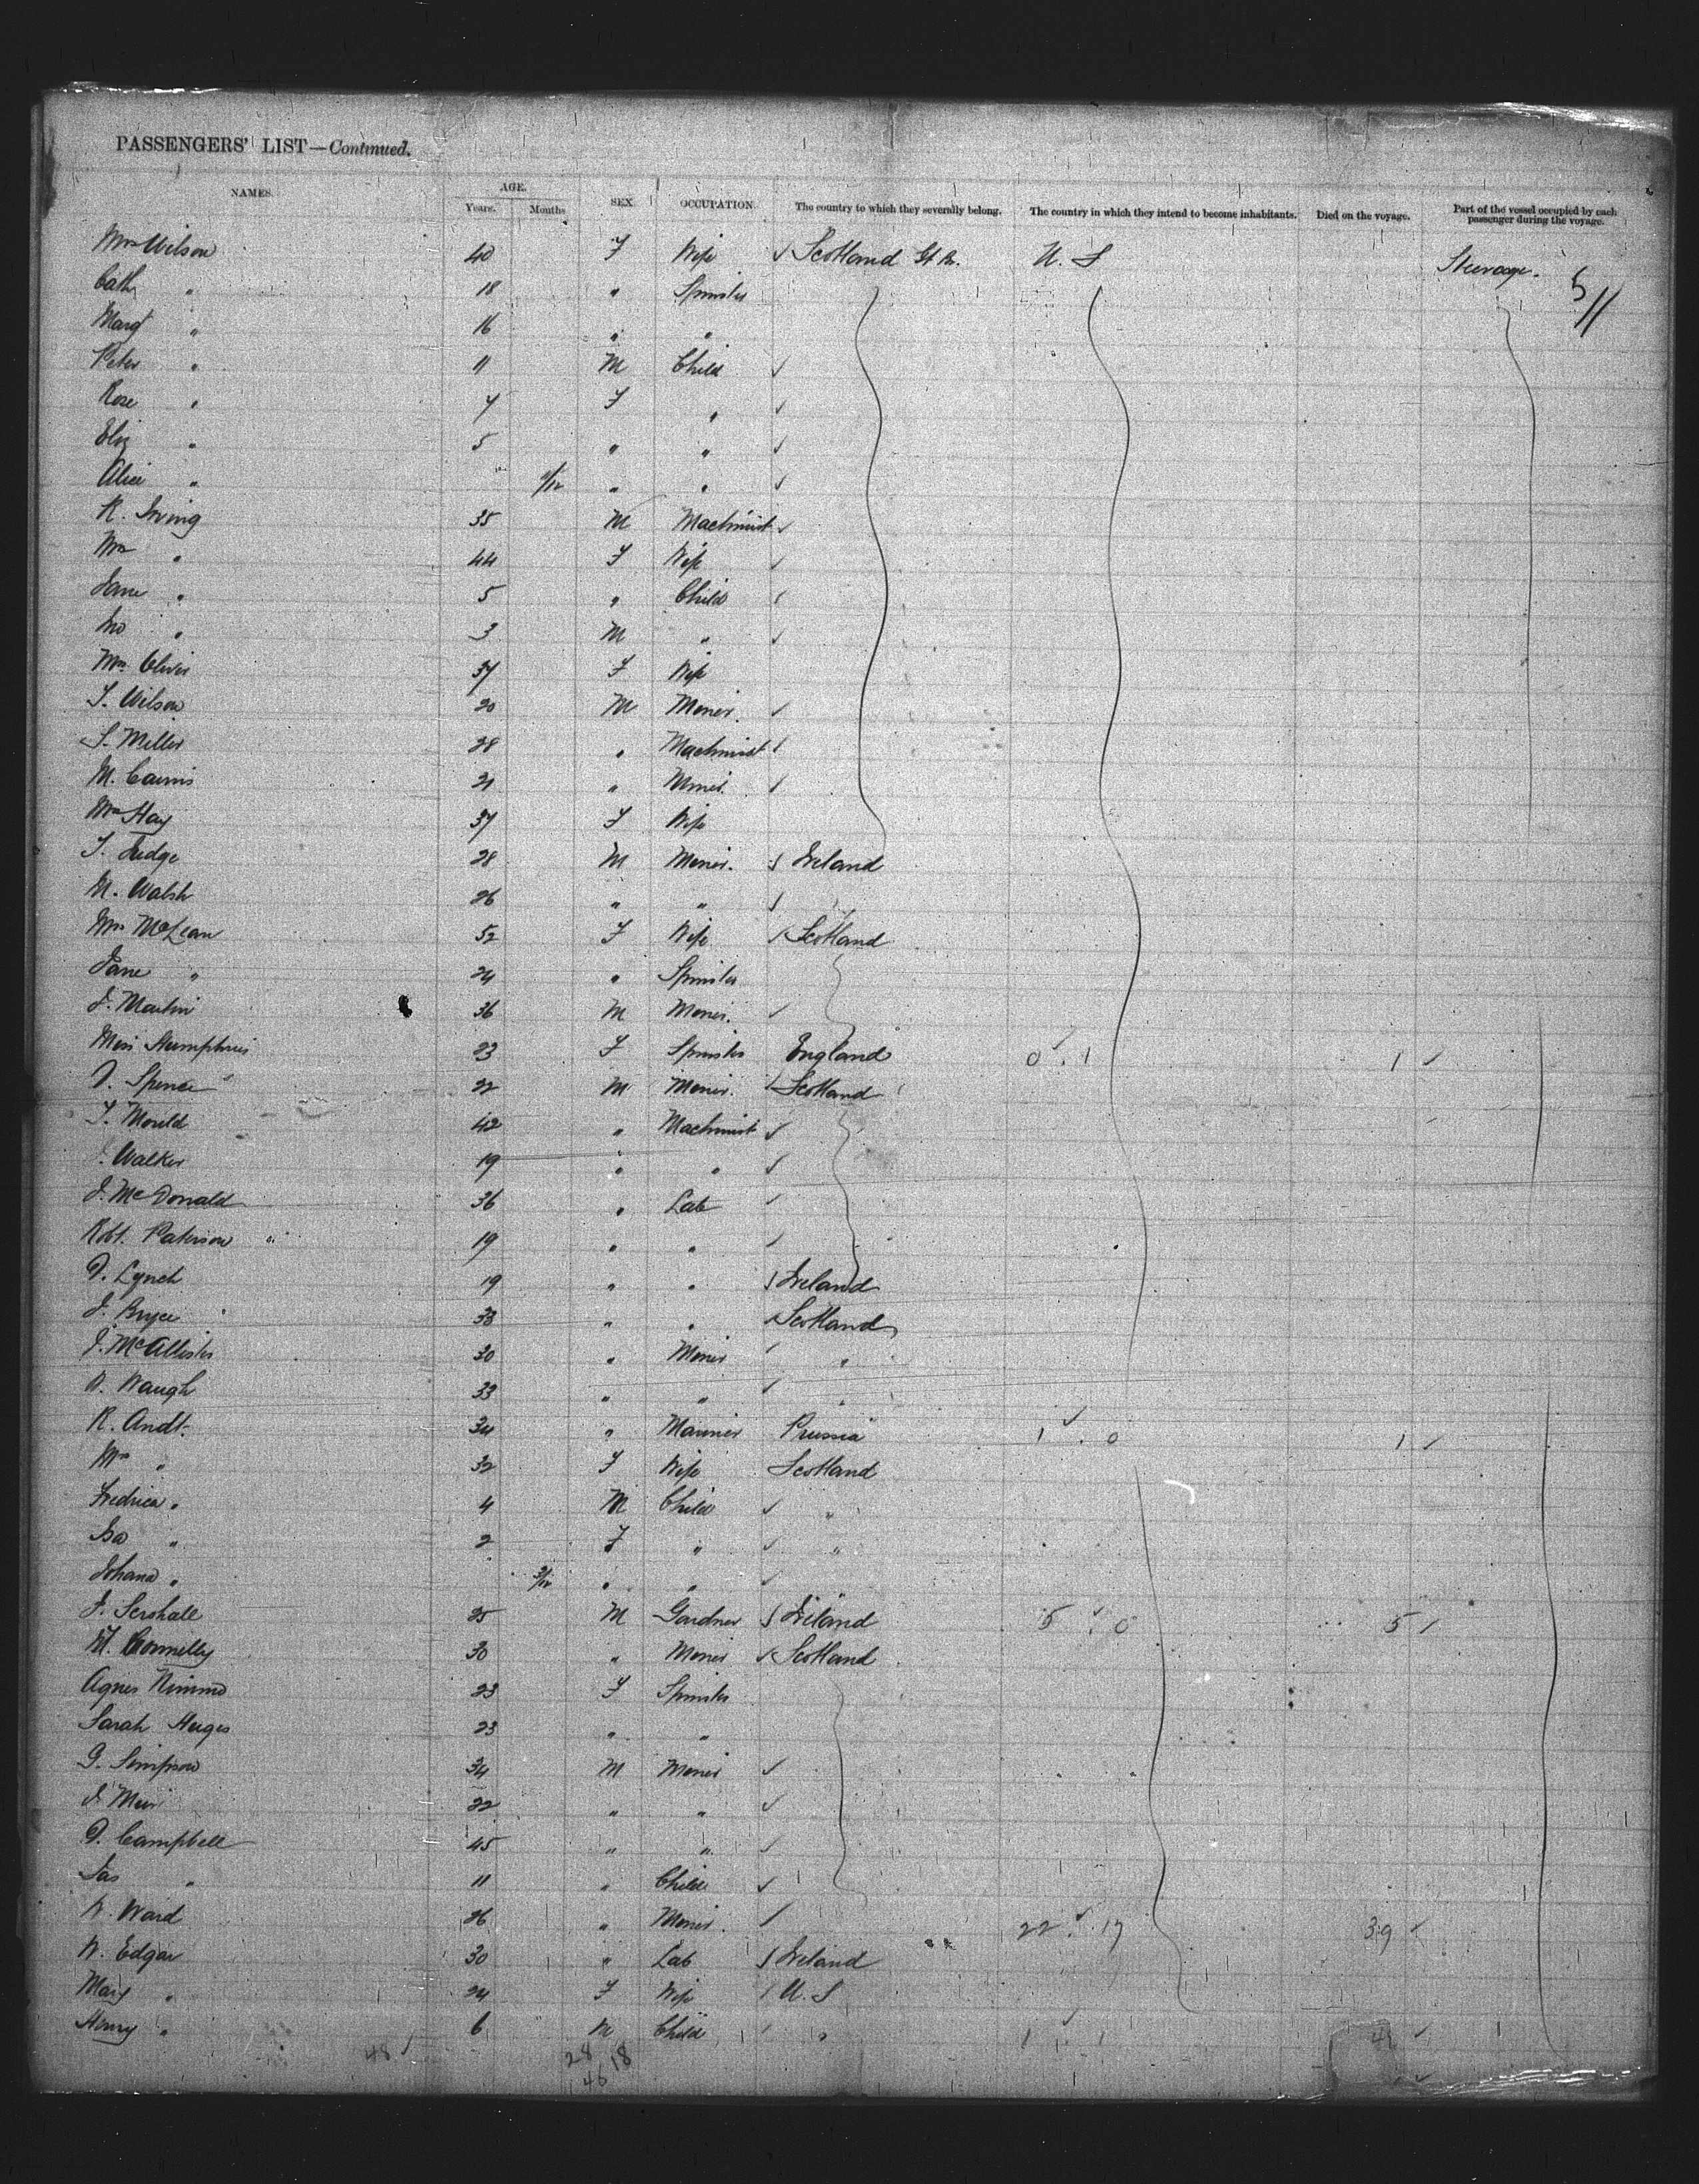 PASSENGERS' LIST—Continued.
NAMES. AGE. SEX OCCUPATION. The country to which they severally belong. The country in which they intend to become inhabitants. Died on the voyage. Part of the vessel occupied by each passenger during the voyage.
Years. Months
Mrs Wilson 40 F Wife ✓ Scotland Gt Br. U. S Steerage.
Cath " 18 " Spinster
Margt " 16 " "
Peter " 11 M Child ✓
Rose " 7 F " ✓
Eliz " 5 " " ✓
Alice " /12 " " ✓
R. Irving 35 M Machinist ✓
Mrs " 44 F Wife ✓
Jane " 5 " Child ✓
Jno " 3 M " ✓
Mrs Oliver 37 F Wife
T. Wilson 20 M Miner. ✓
S. Miller 28 " Machinist ✓
M. Cairns 21 " Miner. ✓
Mrs Hay 37 F Wife
T. Judge 28 M Miner. Ireland
M. Walsh 26 " "
Mrs McLean 52 F Wife ✓ Scotland
Jane " 24 " Spinster
J. Martin 36 M Miner. ✓
Miss Humphries 23 F Spinster England 0 ✓ 1 1 ✓
D. Spence 22 M Miner. Scotland
T. Mould 42 " Machinist ✓
Walker 19 " " ✓
J. McDonald 36 " Lab ✓
Robt. Paterson 19 " " ✓
D. Lynch 19 " " Ireland
J. Bryce 38 " " Scotland
J. McAllister 30 " Miner ✓ "
Waugh 33 " " ✓ "
R. Andt. 34 " Mariner Prussia 1 ✓ 0 1 ✓
Mrs " 32 F Wife Scotland
Fredrica " 4 M Child ✓ "
Isa " 2 F " ✓ "
Johana " 3/12 " " ✓
J. 25 M Gardner Ireland 5 ✓ 0 5 ✓
M. Connelly 30 " Miner ✓ Scotland
Agnes Nimmo 23 F Spinster
Sarah 23 " "
G. Simpson 34 M Miner ✓
J. Muir 22 " " ✓
D. Campbell 45 " " ✓
Jas " 11 " Child ✓
W. Ward 26 " Miner. ✓ 22 ✓ 17 39 ✓
W. Edgar 30 " Lab Ireland
Mary " 24 F Wife U. S
Henry " 6 M Child " 1 ✓ 1
48 ✓ 28 18
46